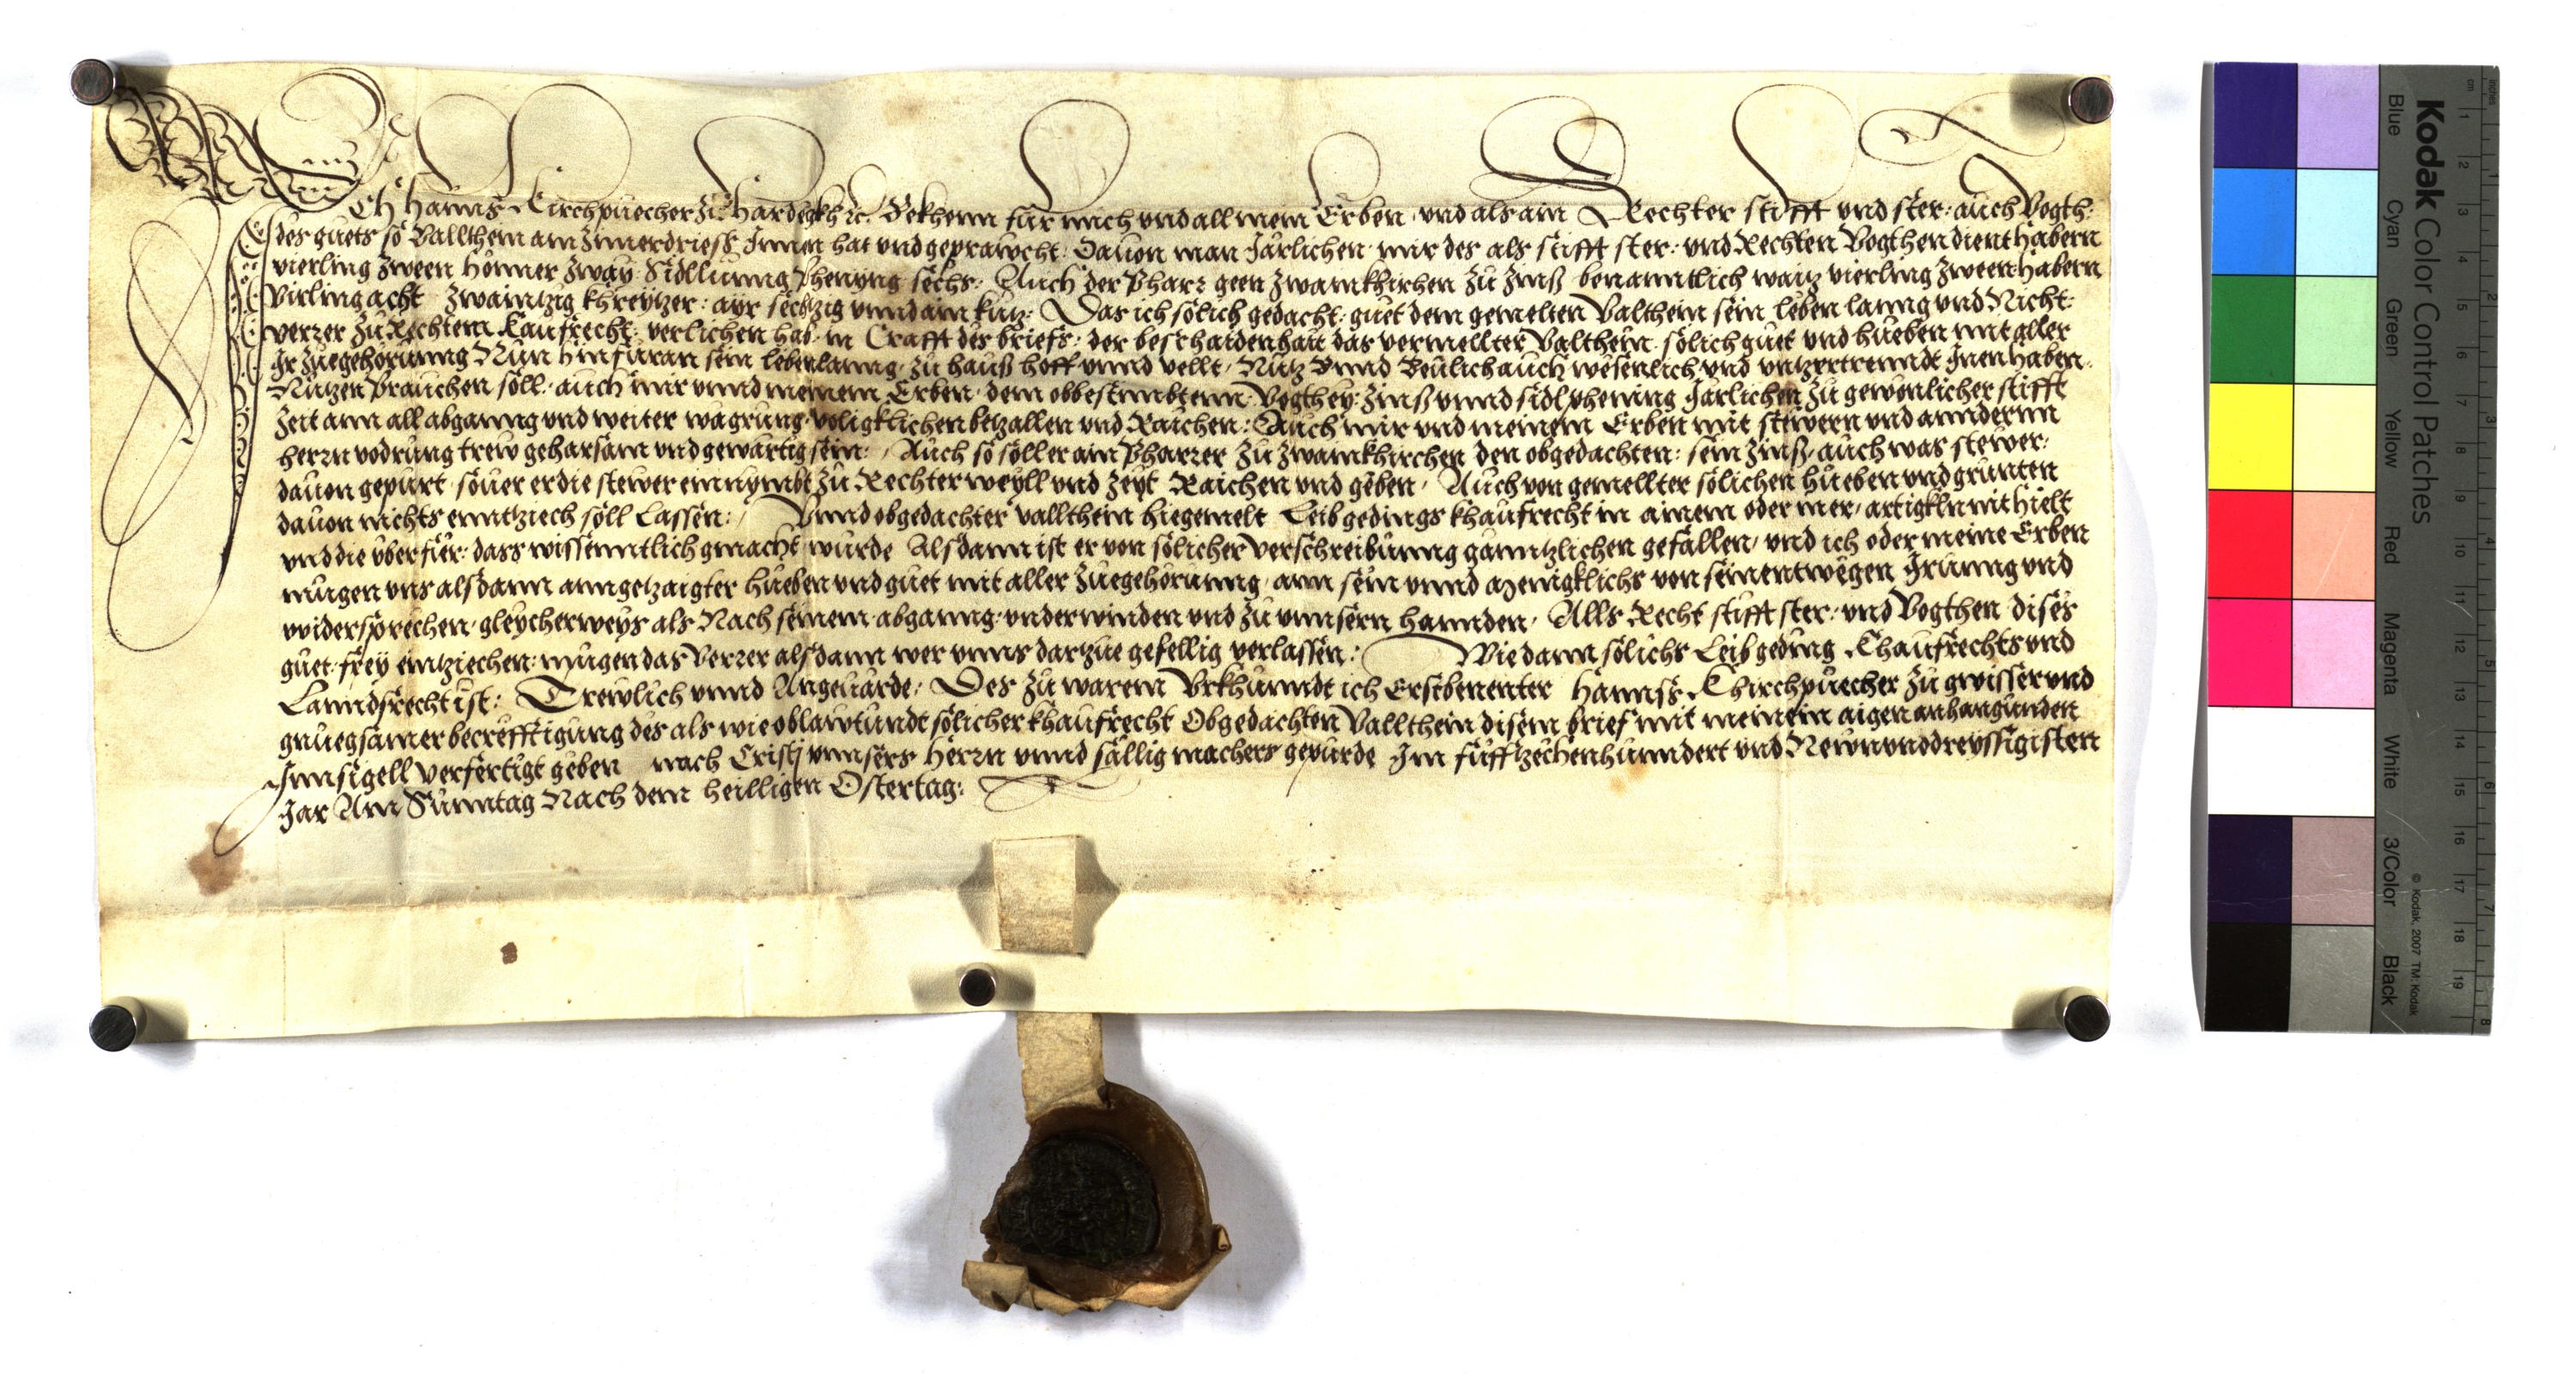 Ich Hanns Kirchpuecher zu Hardegkh etc. Bekhenn für mich vnd all mein Erben vnd als ain Rechter stifft vnd ster: auch Vogth:
des guets so Vallthein am Zimerdriess Innen hat vnd geprawcht: Dauon man Järlichen mir des als stifft ster: vnd Rechten Vogthen dient habern
vierling zween Hönner zway Sidllunng phenyng sechs: Auch der Pharr geen Zwamkhirchen zu Zinß benanntlich waitz vierling zween habern
virling acht zwaintzig khreytzer: ayr sechtzig vnnd ain kütz: Das ich sölich gedacht guet dem gemelten Valthein sein leben lanng vnd Nicht:
verrer zu Rechtem Kaufrecht: verlichen hab in Crafft des briefs: der beschaidenhait das vermellter Valthein sölich guet vnd hueben mit aller
Ir zuegehörunng Nun hinfüran sein lebenlanng zu hauß hoff vnnd vellt Nutz vnnd Beulich auch wesenlich vnd vntzertrenndt Inen haben
Nutzen prauchen soll auch mir vnnd meinem Erben dem obbestimbtenn Vogthey Zinß vnnd sidlphening Järlichen zu gewonlicher stifft
Zeit ann all abganng vnd weiter wagrung voligklichen betzallen vnd Raichen: Auch mir vnd meinem Erben mit stewern vnd annderm
herrn vodrung trew geharsam vnd gewartig sein: Auch so soll er ain Pharrer zu Zwamkhirchen den obgedachten: sein Zinß auch was stewer:
dauon gepurt souer er die stewer einnymbt zu Rechter weyll vnd zeyt Raichen vnd geben Auch von gemellter sölichen hueben vnd grunten
dauon nichts enntziech soll Lassen: Vnnd obgedachter vallthein hiegemelt Leibgedings khaufrecht in ainem oder mer artigkln nit hielt
vnd die überfüer: dass wissenntlich gmacht würde Alsdann ist er von sölicher verschreibunng gänntzlichen gefallen vnd ich oder meine Erben
mugen vns alsdann anngetzaigter hueben vnd guet mit aller Zuegehörunng ann sein vnnd menigklichs von seinentwegen Irrunng vnd
widersprechen gleycherweys als Nach seinem abganng vnderwinden vnd zu vnnsern hannden Alls Recht stifft ster: vnd Vogthen dises
guet frey eintziechen mugen das Verrer alsdann wer vnns darzue gefellig verlassen: Wie dann sölichs Leibgeding Khaufrechts vnd
Lanndsrecht ist: Trewlich vnnd Angeuärde Des zu warem Vrkhunndt ich Erstbenenter Hanns Khirchpuecher zu gwisser vnd
gnuegsamer becrefftigung des als wie oblawtundt sölicher khaufrecht Obgedachten Vallthein disem brief mit meinem aigen anhangunden
Innsigell verfertigt geben nach Cristj vnnsers Herrn vnnd sälligmachers gepurde Im fufftzechenhunndert vnd Newnvnddreyssigisten
Jar Am Sunntag Nach dem heilligen Ostertag:
Kodak Color Control Patches
Blue Cyan Green Yellow Red Magenta White 3/Color Black
© Kodak, 2007 TM: Kodak
cm 1 2 3 4 5 6 7 8 9 10 11 12 13 14 15 16 17 18 19
inches 1 2 3 4 5 6 7 8